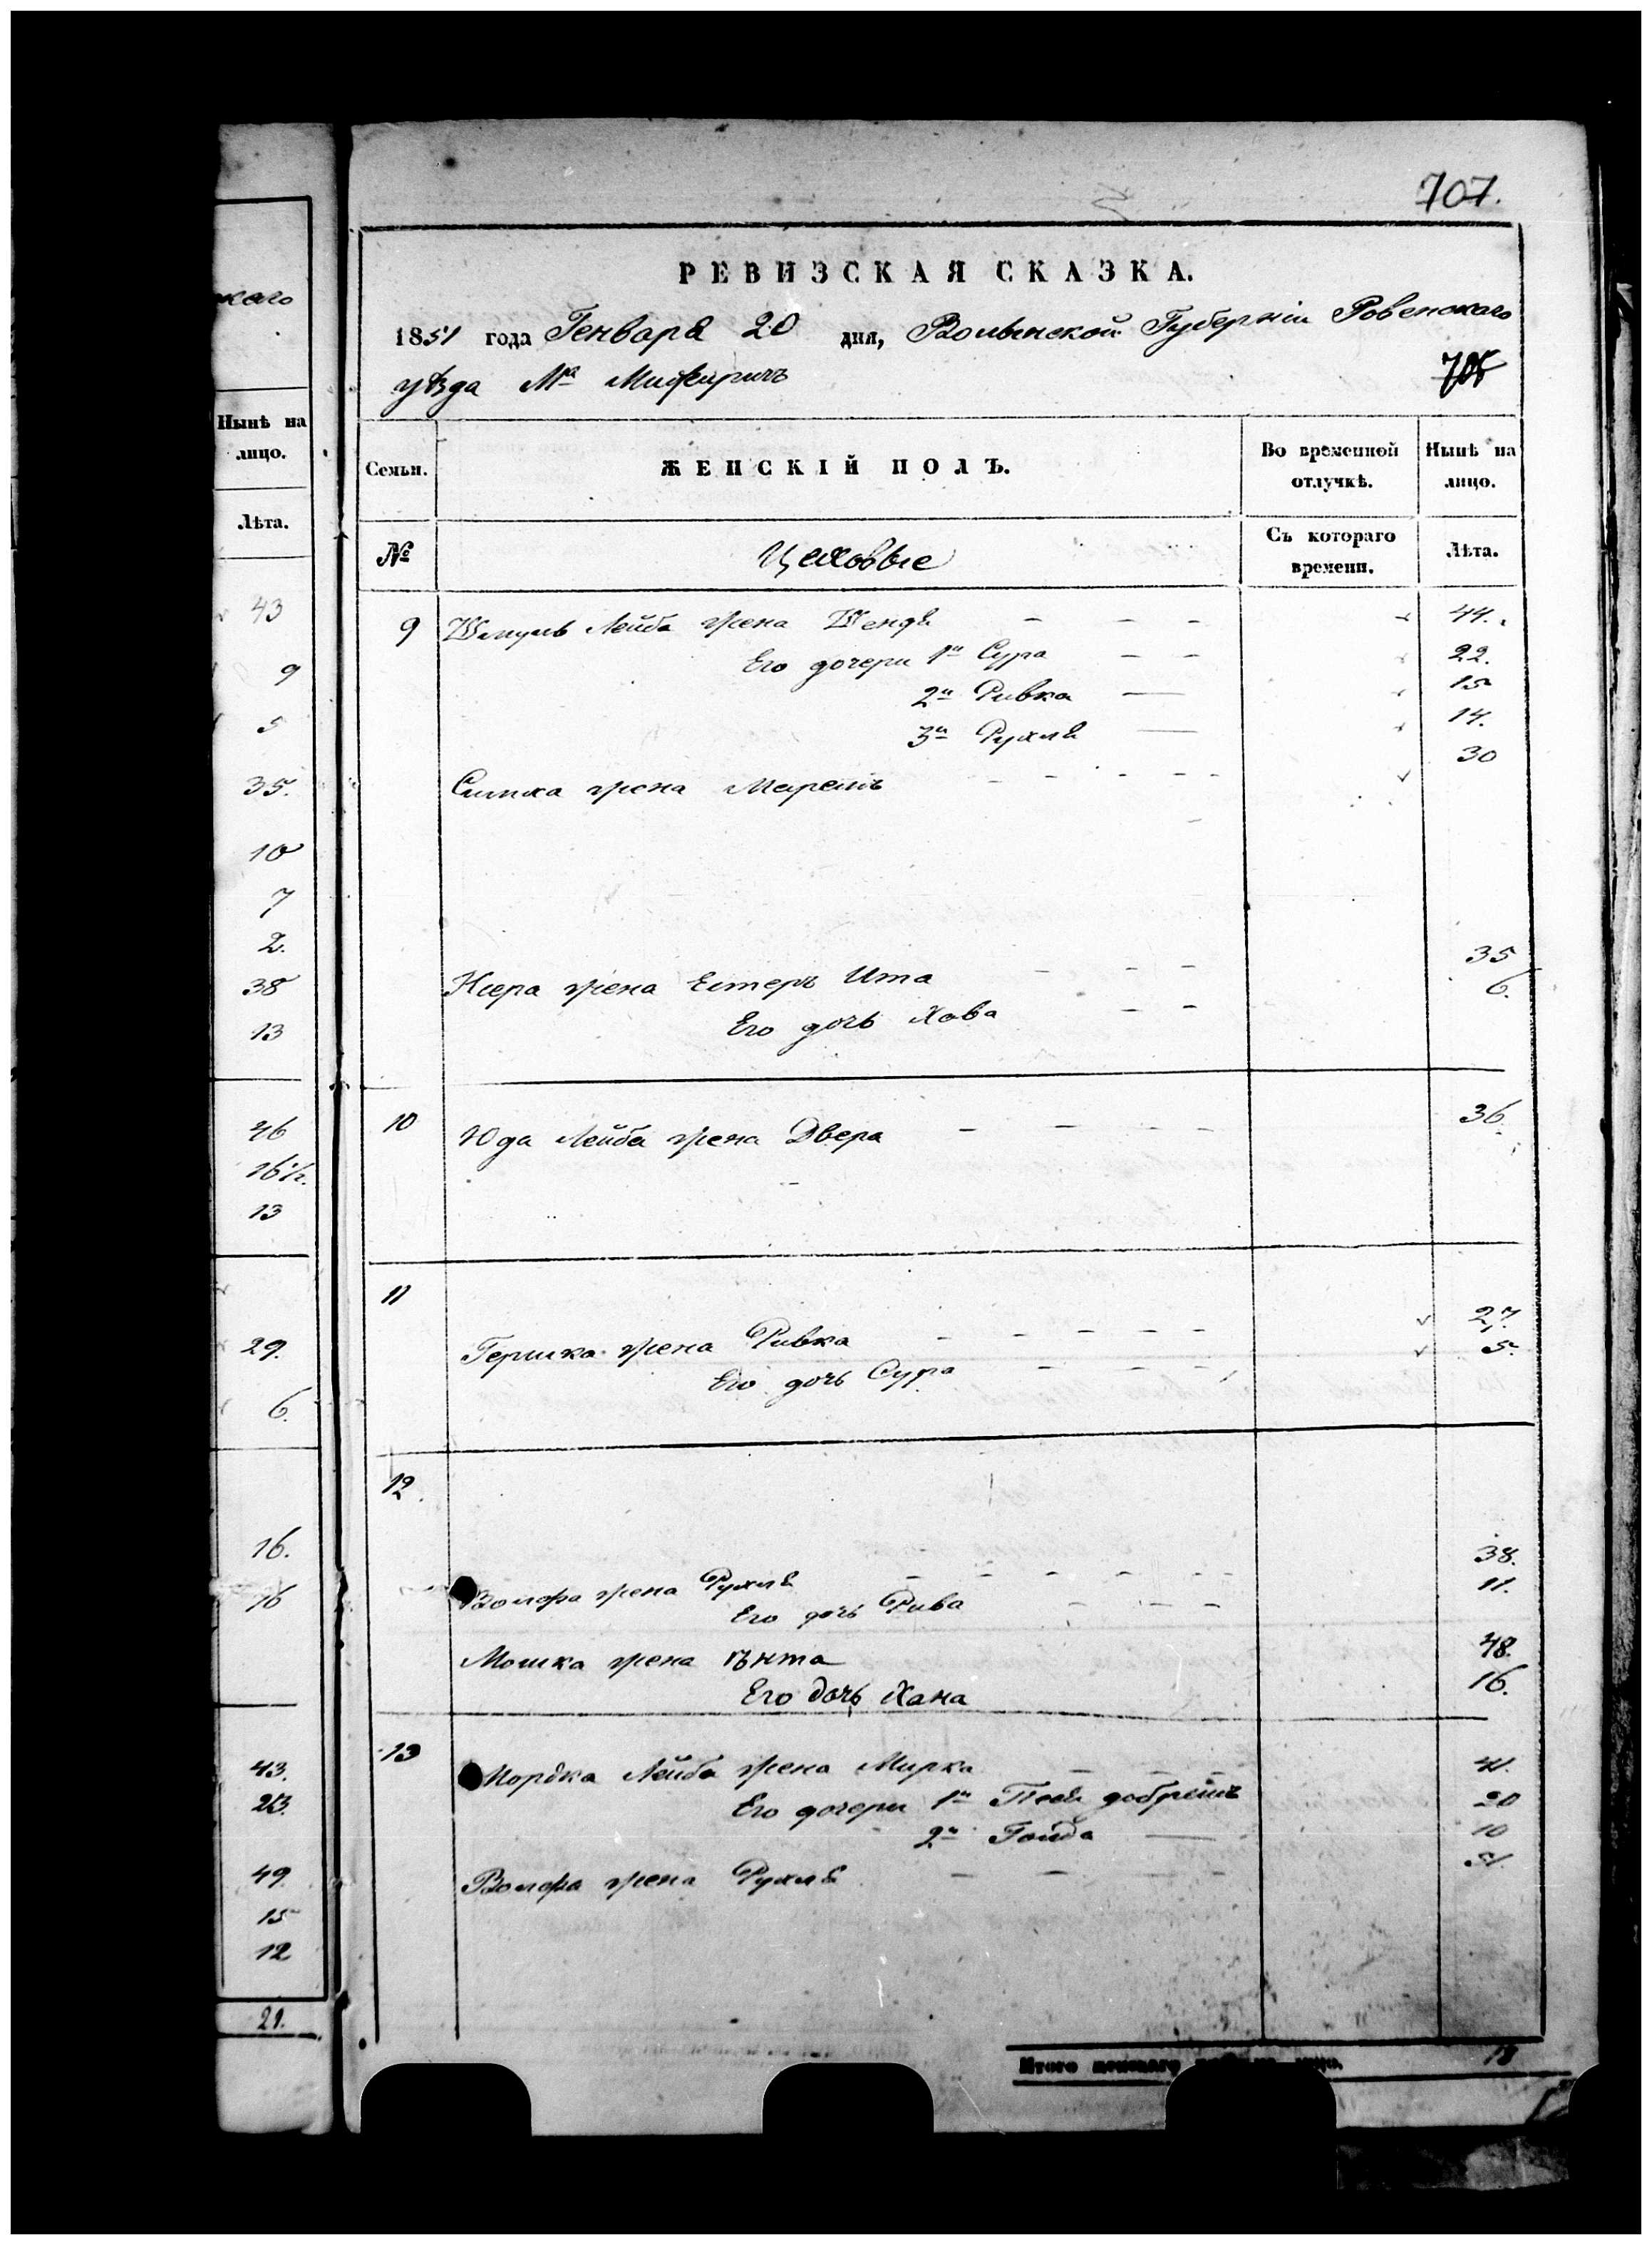 каго
Нынѣ на
лицо.
Лѣта.
43
9
5
35.
10
7
2.
38
13
46
16 1/2.
13
29.
6.
16.
16
43.
23.
49
15
12
21.
707.
РЕВИЗСКАЯ СКАЗКА.
1851 года Генваря 20 дня, Волынской Губерніи Ровенскаго
уѣзда Мка Межиричъ
Семьи. ЖЕНСКІЙ ПОЛЪ. Во временной отлучкѣ. Нынѣ на лицо.
№ Цеховые Съ котораго времени. Лѣта.
9 Шмуль Лейба жена Шендя 44.
Его дочери 1я Сура 22.
2я Ривка 15
3я Рухля 14.
Симха жена Маремъ 30
жена Естеръ Ита 35
Его дочь Хава 6.
10 Юда Лейба жена Двера 36.
11
Гершка жена Ривка 27.
Его дочь Сура 5.
12.
Волфа жена Рухля 38.
Его дочь Рива 11.
Мошка жена Ѣнта 48.
Его дочь Хана 16.
13 Мордка Лейба жена Мирка 41.
Его дочери 1я Песя добрешъ 20
2я Голда 10
Волфа жена Рухля 51.
Итого женскаго 18